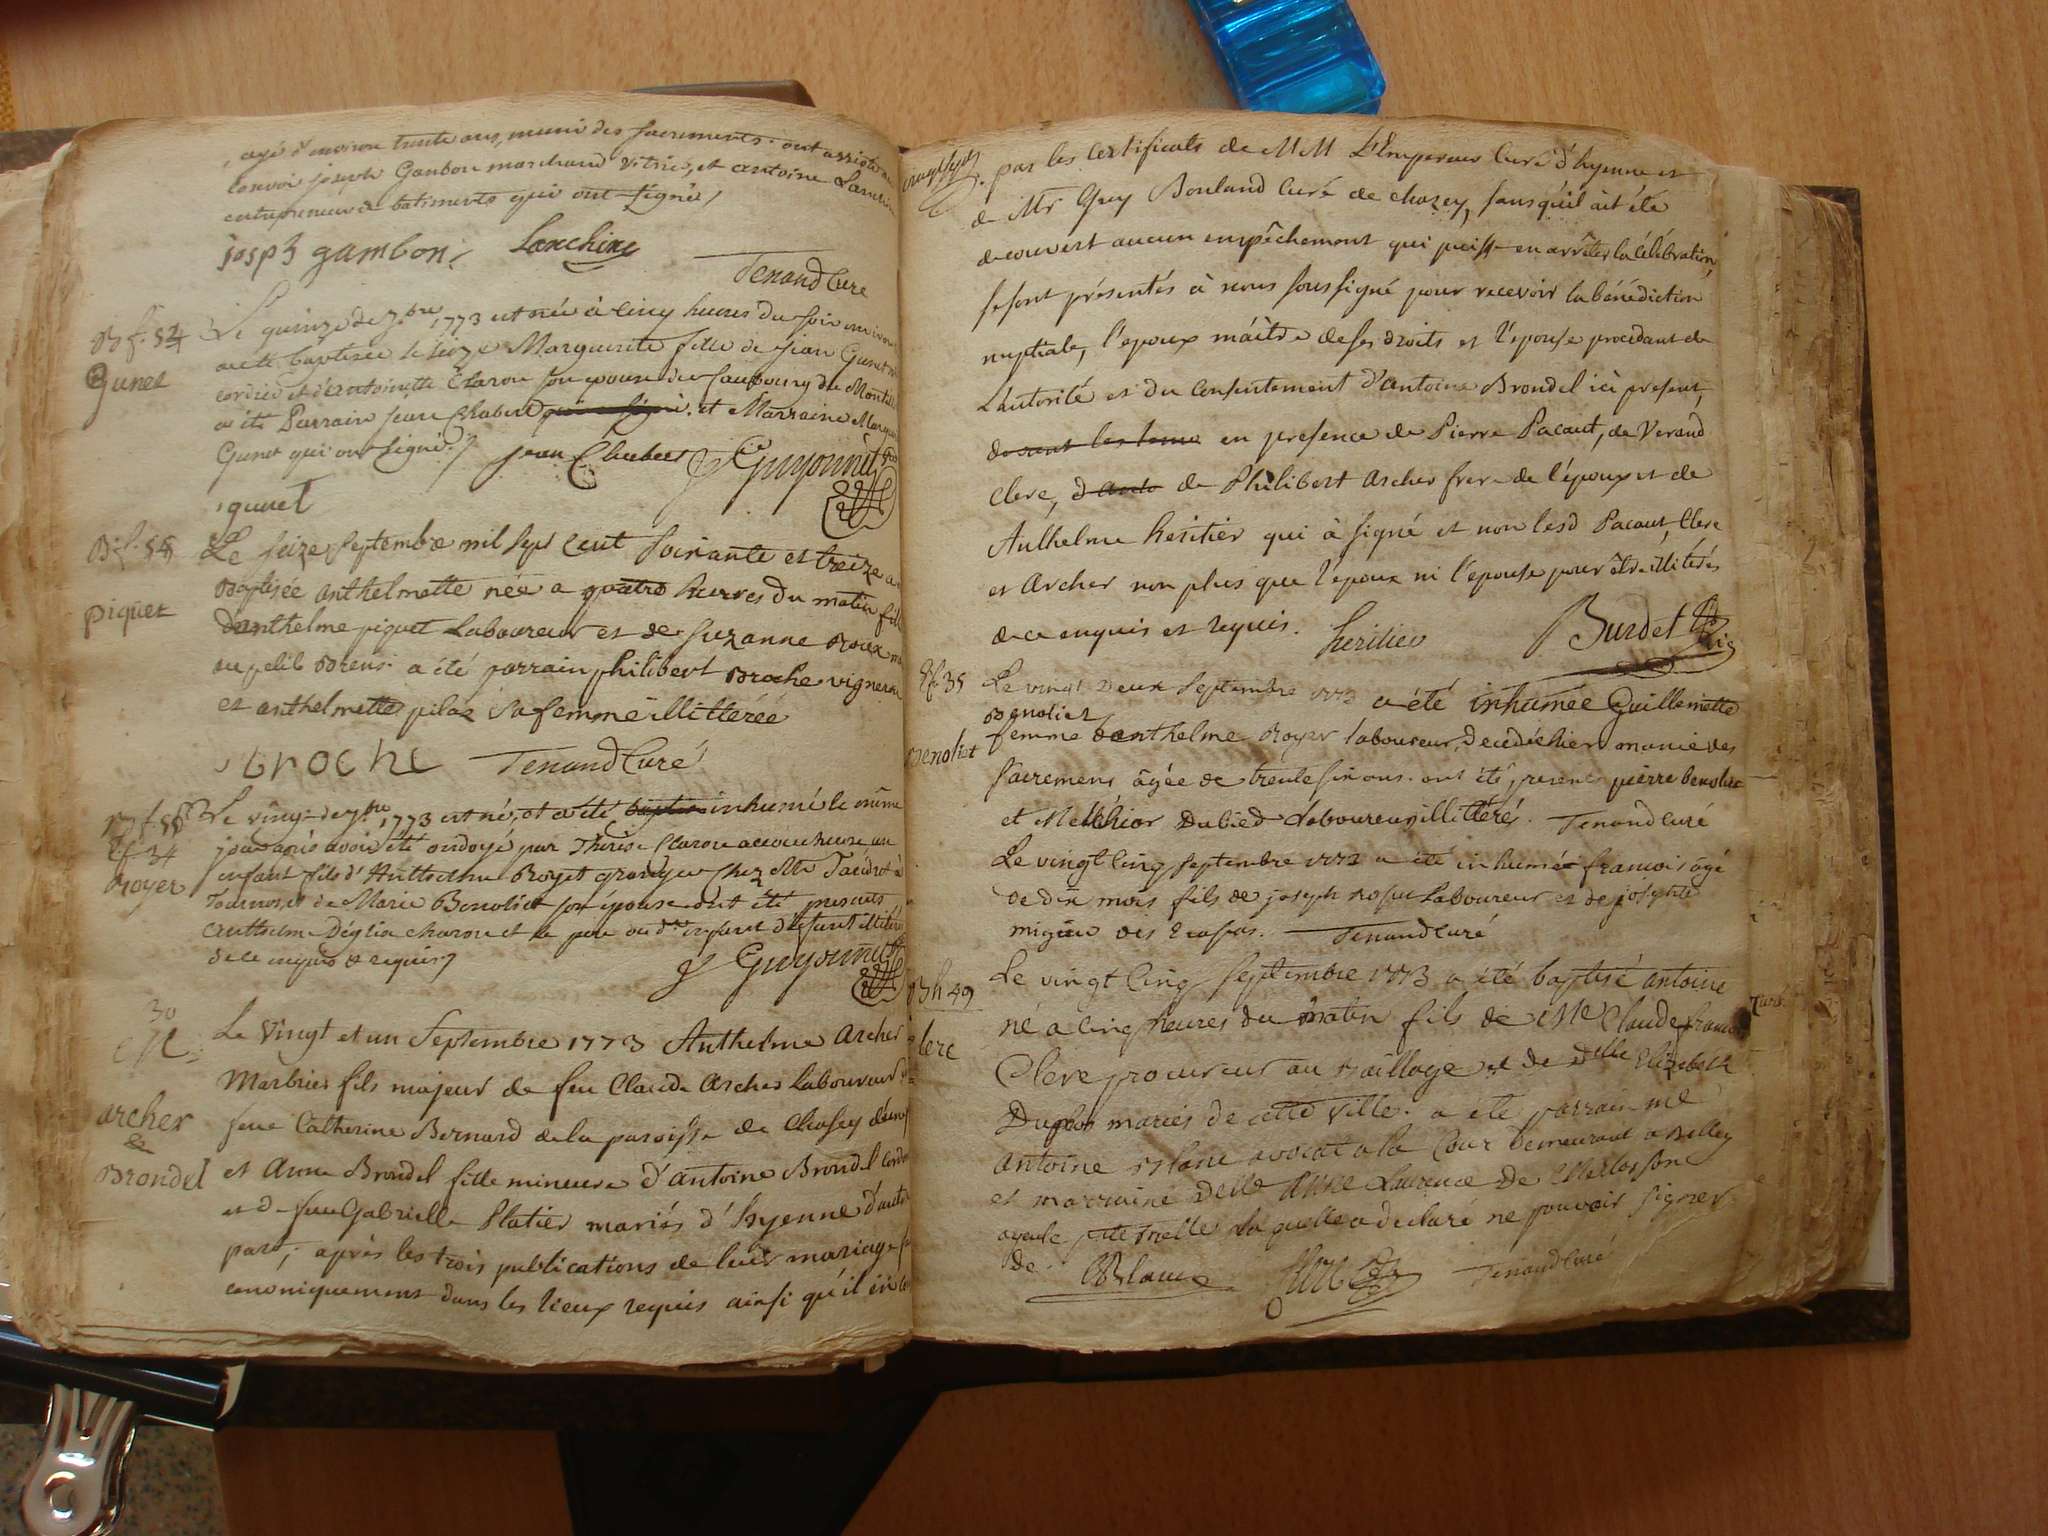 , agé d'environ trente ans, muni des sacrements. ont assisté au
convoi joseph Gambon marchand vitrier, et antoine
entrepreneur de batiments qui ont signés /
josph gambon
Tenand Curé
B f. 54
Gunet
Le quinze de 7.bre 1773 est née à cinq heures du soir environ
et a été baptisée le seize Marguerite fille de jean Gunet
et d'antoinette Claron son épouse du faubourg du
a été Parrain jean Chabert qui a signé. et Marraine
Gunet qui ont signé. /
jean Chabert Guyonnet
gunet
B. f. 55
piquet
Le seize septembre mil sept cent soixante et treize a
Baptisée anthelmette née a quatre heures du matin
d'anthelme piquet Laboureur et de suzanne Roux
au petit Brens. a été parrain philibert Broche vigneron
et anthelmette pilaz sa femme illitterée
Broche Tenand Curé
34
Royer
Le vingt de 7.bre 1773 est né, et a été baptisé inhumé le même
jour après avoir été ondoyé par Thérèse Claron accoucheuse un
enfant fils d'Anthelme Royet granger chez Mr
et de Marie Benoliet son épouse ont été présents
charon et le père du d. enfant illitérés
de ce enquis & requis /
Guyonnet
30
M.
archer
&
Brondel
Le vingt et un Septembre 1773 Anthelme Archer
Marbrier fils majeur de feu Claude Archer laboureur
feue Catherine Bernard de la paroisse de Chosey
et Anne Brondel fille mineure d'antoine Brondel
et de feue Gabrielle Platier mariés d'hyenne d'autre
part; après les trois publications de leur mariage
canoniquement dans les lieux requis ainsi qu'il
par les certificats de MM L'Empereur Curé d'hyenne et
de Mr Guy Bouland Curé de chozey, sans qu'il ait été
decouvert aucun empêchement qui puisse en arrêter la célébration,
se sont présentés à nous soussigné pour recevoir la bénédiction
nuptiale, l'époux maître de ses droits et l'épouse procédant de
L'autorité et du consentement d'antoine Brondel ici présent,
en presence de Pierre Pacaut, de Verand
Clerc, de Philibert Archer frere de l'époux et de
Anthelme heritier qui à signé et non lesd Pacaut, Clerc
et Archer non plus que l'époux ni l'épouse pour être illitérés
de ce enquis et requis. heritier Burdet Vic
Sf. 35
benoliet
Le vingt Deux Septembre 1773 a été inhumée Guillemette
Benoliet
femme d'anthelme Royer laboureur, decedée hier munie des
sacremens âgée de trente six ans. ont été presens pierre benoliet
et Melchior Dubied Laboureurs illittérés. Tenand Curé
Le vingt Cinq septembre 1773 a été inhumée francois âgé
de dix mois fils de joseph Laboureur et de josephte
des Ecassas. Tenand Curé
Bh 49
Clerc
Le vingt Cinq Septembre 1773 a été baptisé antoine
né a cinq heures du matin fils de Me Claude francois
Clerc procureur au Baillage et de Delle Elizabeth
mariés de cette ville. a été parrain Me
antoine Blanc avocat a la Cour demeurant a Belley
et marraine Delle Anne Laurence De
ayeule la quelle a declaré ne pouvoir signer
de
Blanc Clerc Tenand Curé